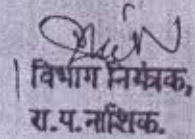 विभाग नियंत्रक,
रा.प.नाशिक.